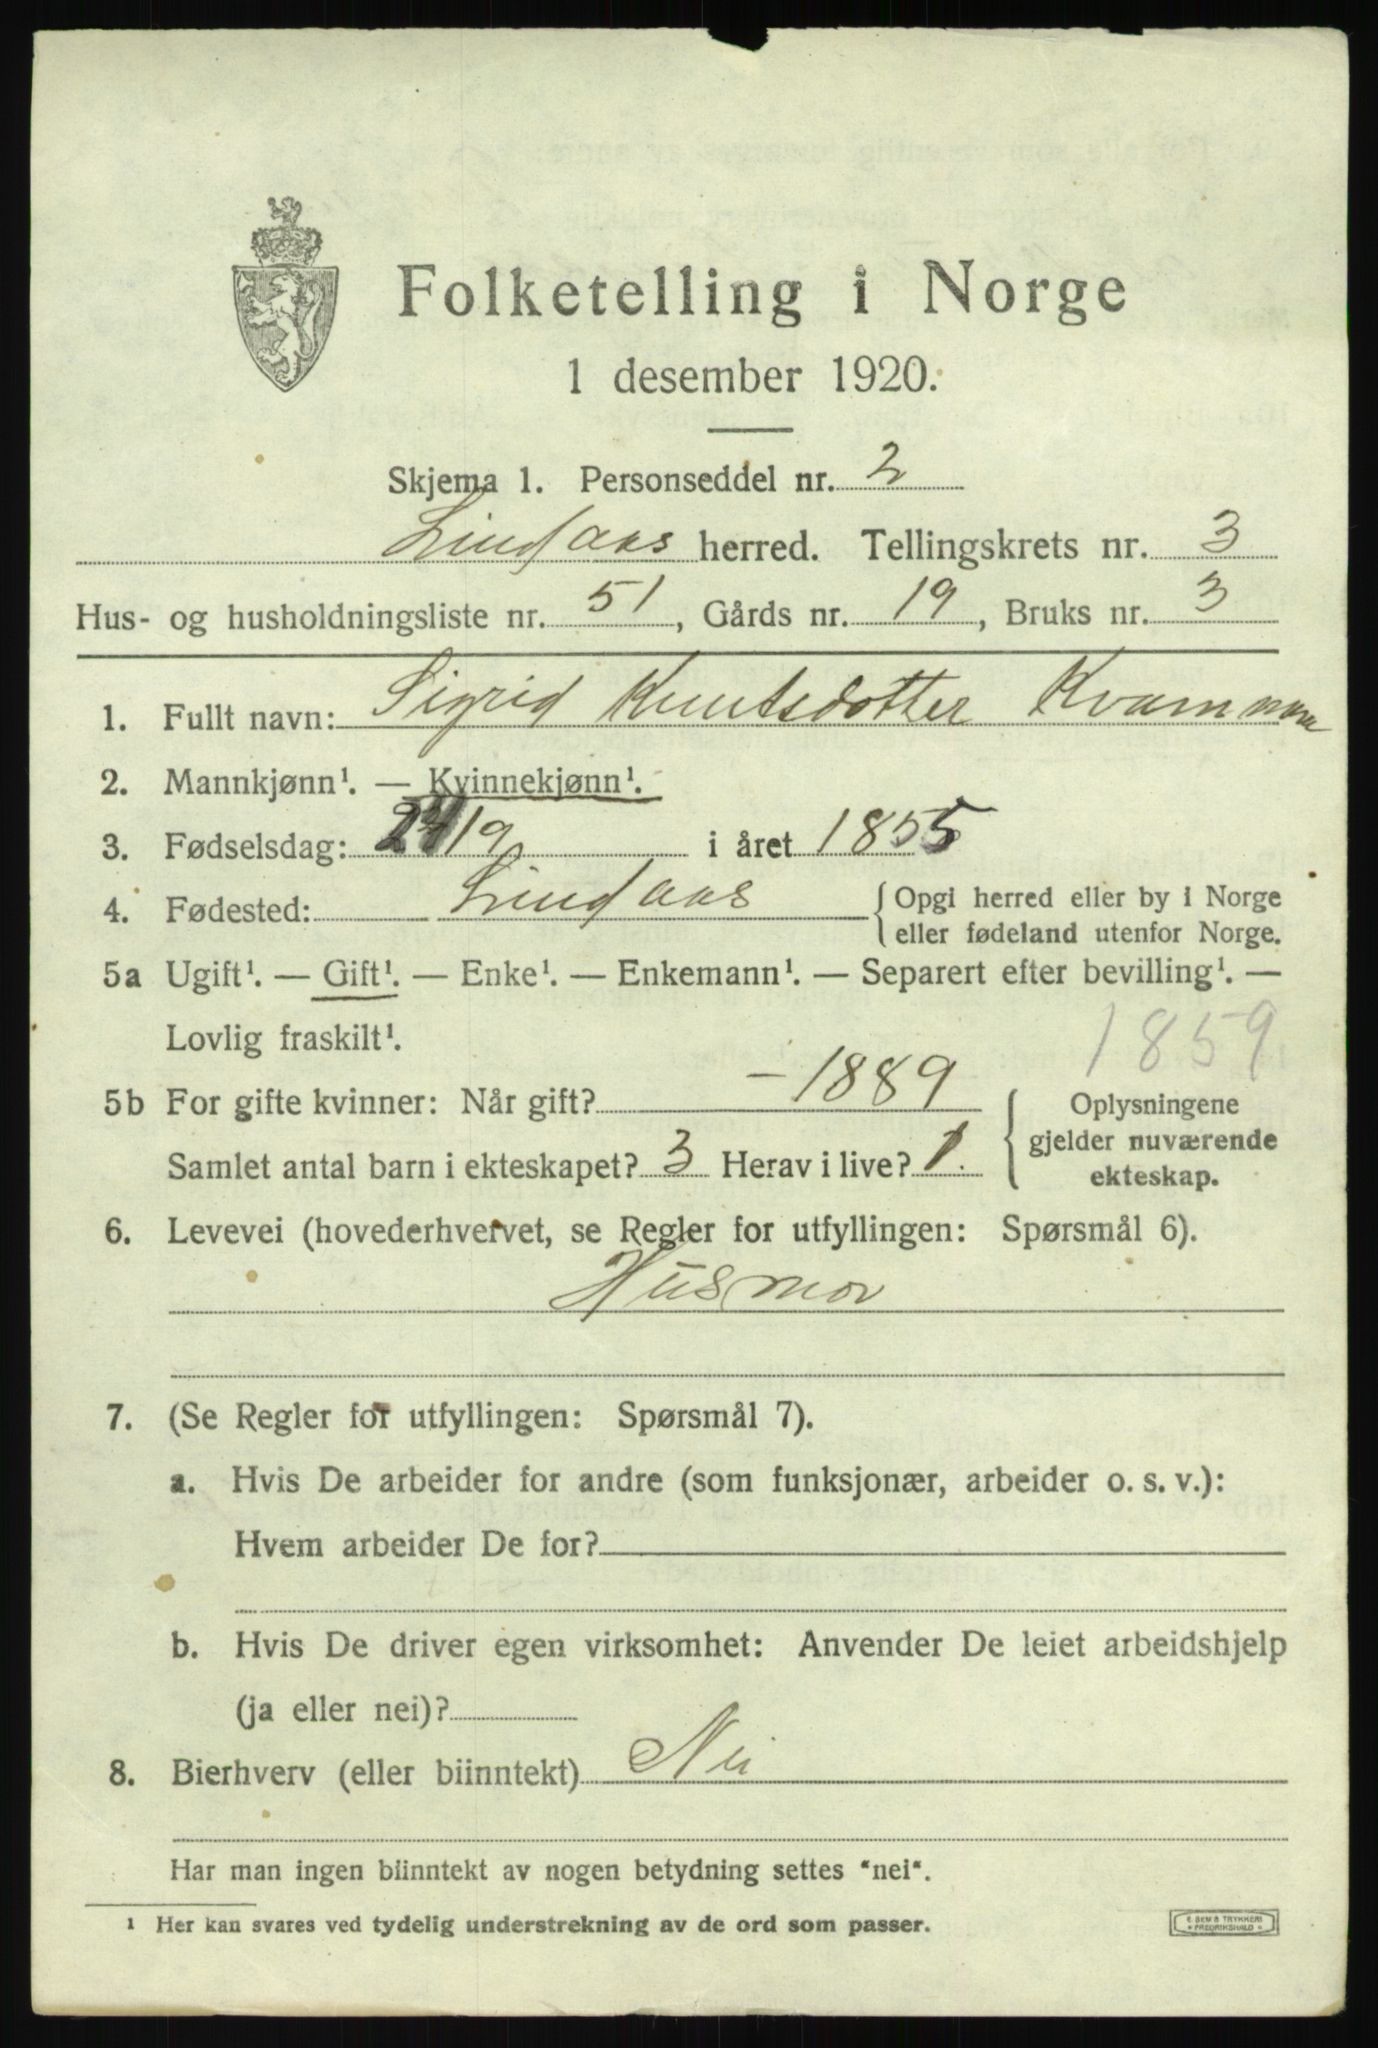 Folketelling i Norge
1 desember 1920.
Skjema 1. Personseddel nr. 2
Lindaas herred. Tellingskrets nr. 3
Hus- og husholdningsliste nr. 51, Gårds nr. 19, Bruks nr. 3
1. Fullt navn: Sigrid Knutsdotter Kvamme
2. Mannkjønn¹. — Kvinnekjønn¹.
3. Fødselsdag: 19 i året 1855
4. Fødested: Lindaas { Opgi herred eller by i Norge
eller fødeland utenfor Norge.
5a Ugift¹. — Gift¹. — Enke¹. — Enkemann¹. — Separert efter bevilling¹. —
Lovlig fraskilt¹. 1859
5b For gifte kvinner: Når gift? - 1889 { Oplysningene
gjelder nuværende
Samlet antal barn i ekteskapet? 3 Herav i live? 1.
ekteskap.
6. Levevei (hovederhvervet, se Regler for utfyllingen: Spørsmål 6).
Husmor
7. (Se Regler for utfyllingen: Spørsmål 7).
a. Hvis De arbeider for andre (som funksjonær, arbeider o. s. v.):
Hvem arbeider De for?
b. Hvis De driver egen virksomhet: Anvender De leiet arbeidshjelp
(ja eller nei)?
8. Bierhverv (eller biinntekt) Nei
Har man ingen biinntekt av nogen betydning settes "nei".
¹ Her kan svares ved tydelig understrekning av de ord som passer.
E. SEM'S TRYKKERI
FREDRIKSHALD